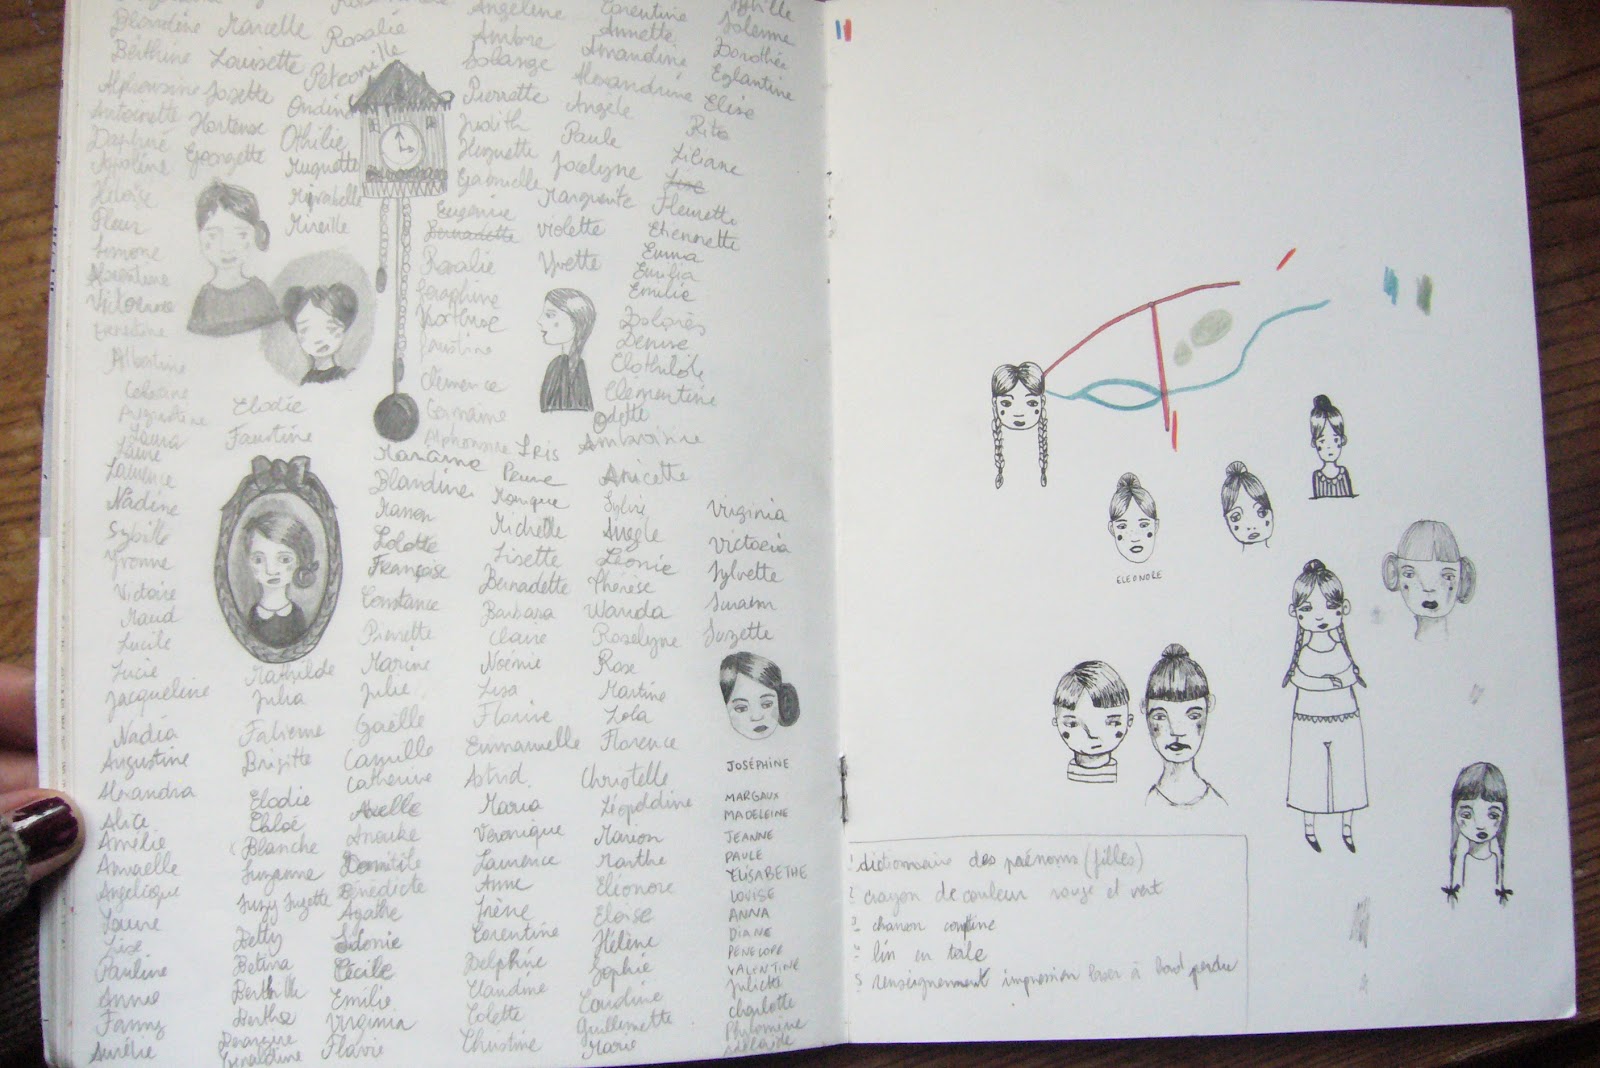 Angeline Corentine Sybille
Blandine Marcelle Rosalie Ambre Annette Solenne
Berthine Louisette Petronille Solange Amandine Dorothée
Alphonsine Josette Ondine Pierrette Alexandrine Eglantine
Antoinette Hortense Othilie Judith Angèle Elise
Daphné Georgette Muguette Huguette Paule Rita
Apoline Mirabelle Gabrielle Jocelyne Liliane
Héloïse Mireille Eugénie Marguerite Lise
Fleur Bernadette Violette Fleurette
Simone Rosalie Yvette Etiennette
Florentine Joséphine Emma
Victorine Hortense Emilia
Ernestine Faustine Emilie
Albertine Clémence Dolorès
Germaine Denise
Augustine Elodie Alphonsine Iris Clothilde
Laura Faustine Clémentine
Laure Odette
Laurence Ambroisine
Nadine Blandine Anicette
Sybille Manon Monique Sylvie Virginia
Yvonne Lolotte Michelle Angèle Victoria
Victoire Françoise Lisette Léonie Sylvette
Maud Constance Bernadette Thérèse
Lucile Pierrette Barbara Wanda Suzette
Lucie Mathilde Marine Claire Roselyne
Jacqueline Julia Julie Noémie Rose
Nadia Fabienne Gaëlle Lisa Martine
Augustine Brigitte Camille Florine Lola
Alexandra Elodie Catherine Emmanuelle Florence
Alice Chloé Axelle Astrid Christelle
Amélie Blanche Anouke Maria Léopoldine
Annaelle Suzanne Domitile Véronique Marion
Angelique Suzy Suzette Bénédicte Laurence Marthe
Laure Betty Agathe Anne Eléonore
Lise Betina Sidonie Irène Eloïse
Pauline Berthille Cécile Corentine Hélène
Annie Berthe Emilie Delphine Sophie
Fanny Virginia Claudine
Aurélie Géraldine Flavie Colette Guillemette
Christine Marie
JOSÉPHINE
MARGAUX
MADELEINE
JEANNE
PAULE
ELISABETHE
LOUISE
ANNA
DIANE
PÉNÉLOPE
VALENTINE
Juliette
charlotte
Philomène
Adelaïde
ELEONORE
1 dictionnaire des prénoms (filles)
2 crayon de couleur rouge et vert
3 chanson comptine
4 lin en toile
5 renseignement impression laser à bord perdu